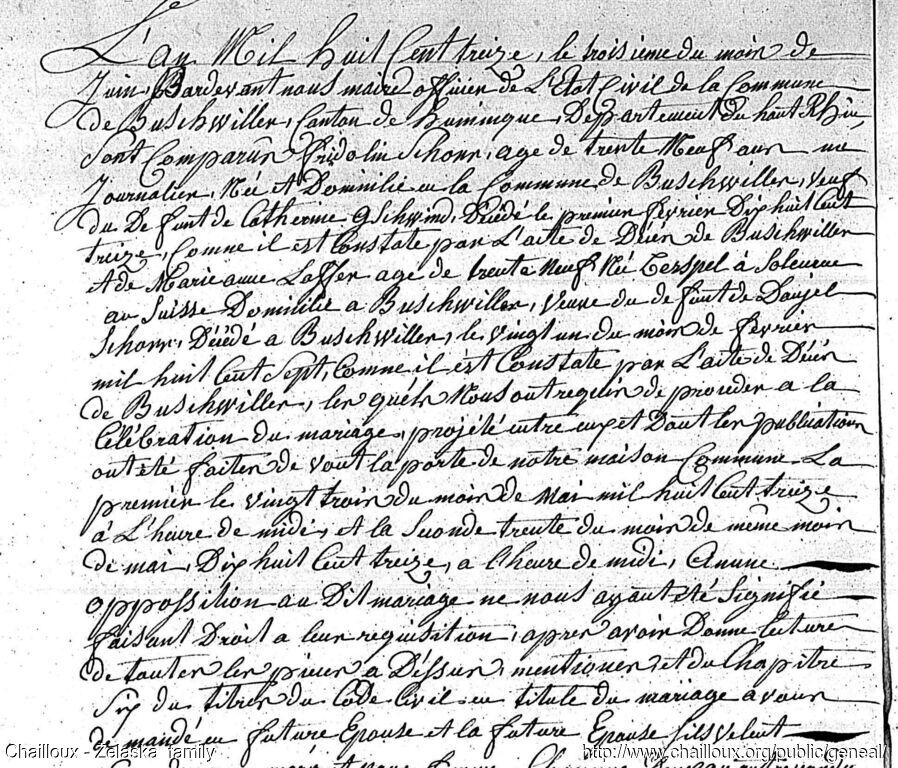 L'an Mil huit Cent treize, le troisieme du mois de
Juin, Pardevant nous maire officier de L'Etat Civil de la Commune
de Buschwiller, Canton de huningue, Departement du haut Rhin,
Sont Comparus Fridolin Schorr, age de trente Neuf ans un
Journalier, Née et Domilié en la Commune de Buschwiller, veuf
du De funt de Catherine gschwind, Décédé le premier fevrier Dix huit Cent
treize, Comme il est Constate par L'acte de Décès de Buschwiller
et de Marie anne Laffer age de trente neuf Née à
au Suisse Domilié a Buschwiller, veuve du de funt de
Schorr, Décédé a Buschwiller, le vingt un du mois de fevrier
mil huit Cent Sept, Comme il est Constate par L'acte de Décès
de Buschwiller, les quels Nous ont requis de proceder a la
Célébration du mariage, projété entre eux et Dont les publications
ont été faites de vant la porte de notre maison Commune La
premier le vingt trois du mois de Mai mil huit Cent treize
à L'heure de midi, et la Seconde trente du mois de même mois
de mai, Dix huit Cent treize, a l'heure de midi, Aucune
oppossition au Dit mariage ne nous ayant été Signifié
faisant Droit a leur requisition, apres avoir Donne lecture
de toutes les pieces a Déssus, mentiones, et du Chapitre
Six du titres du Code Civil en titule du mariage avons
de mandé en future Epouse et la future Epouse sils velent
Chailloux - Zelaska family
http://www.chailloux.org/public/geneal/